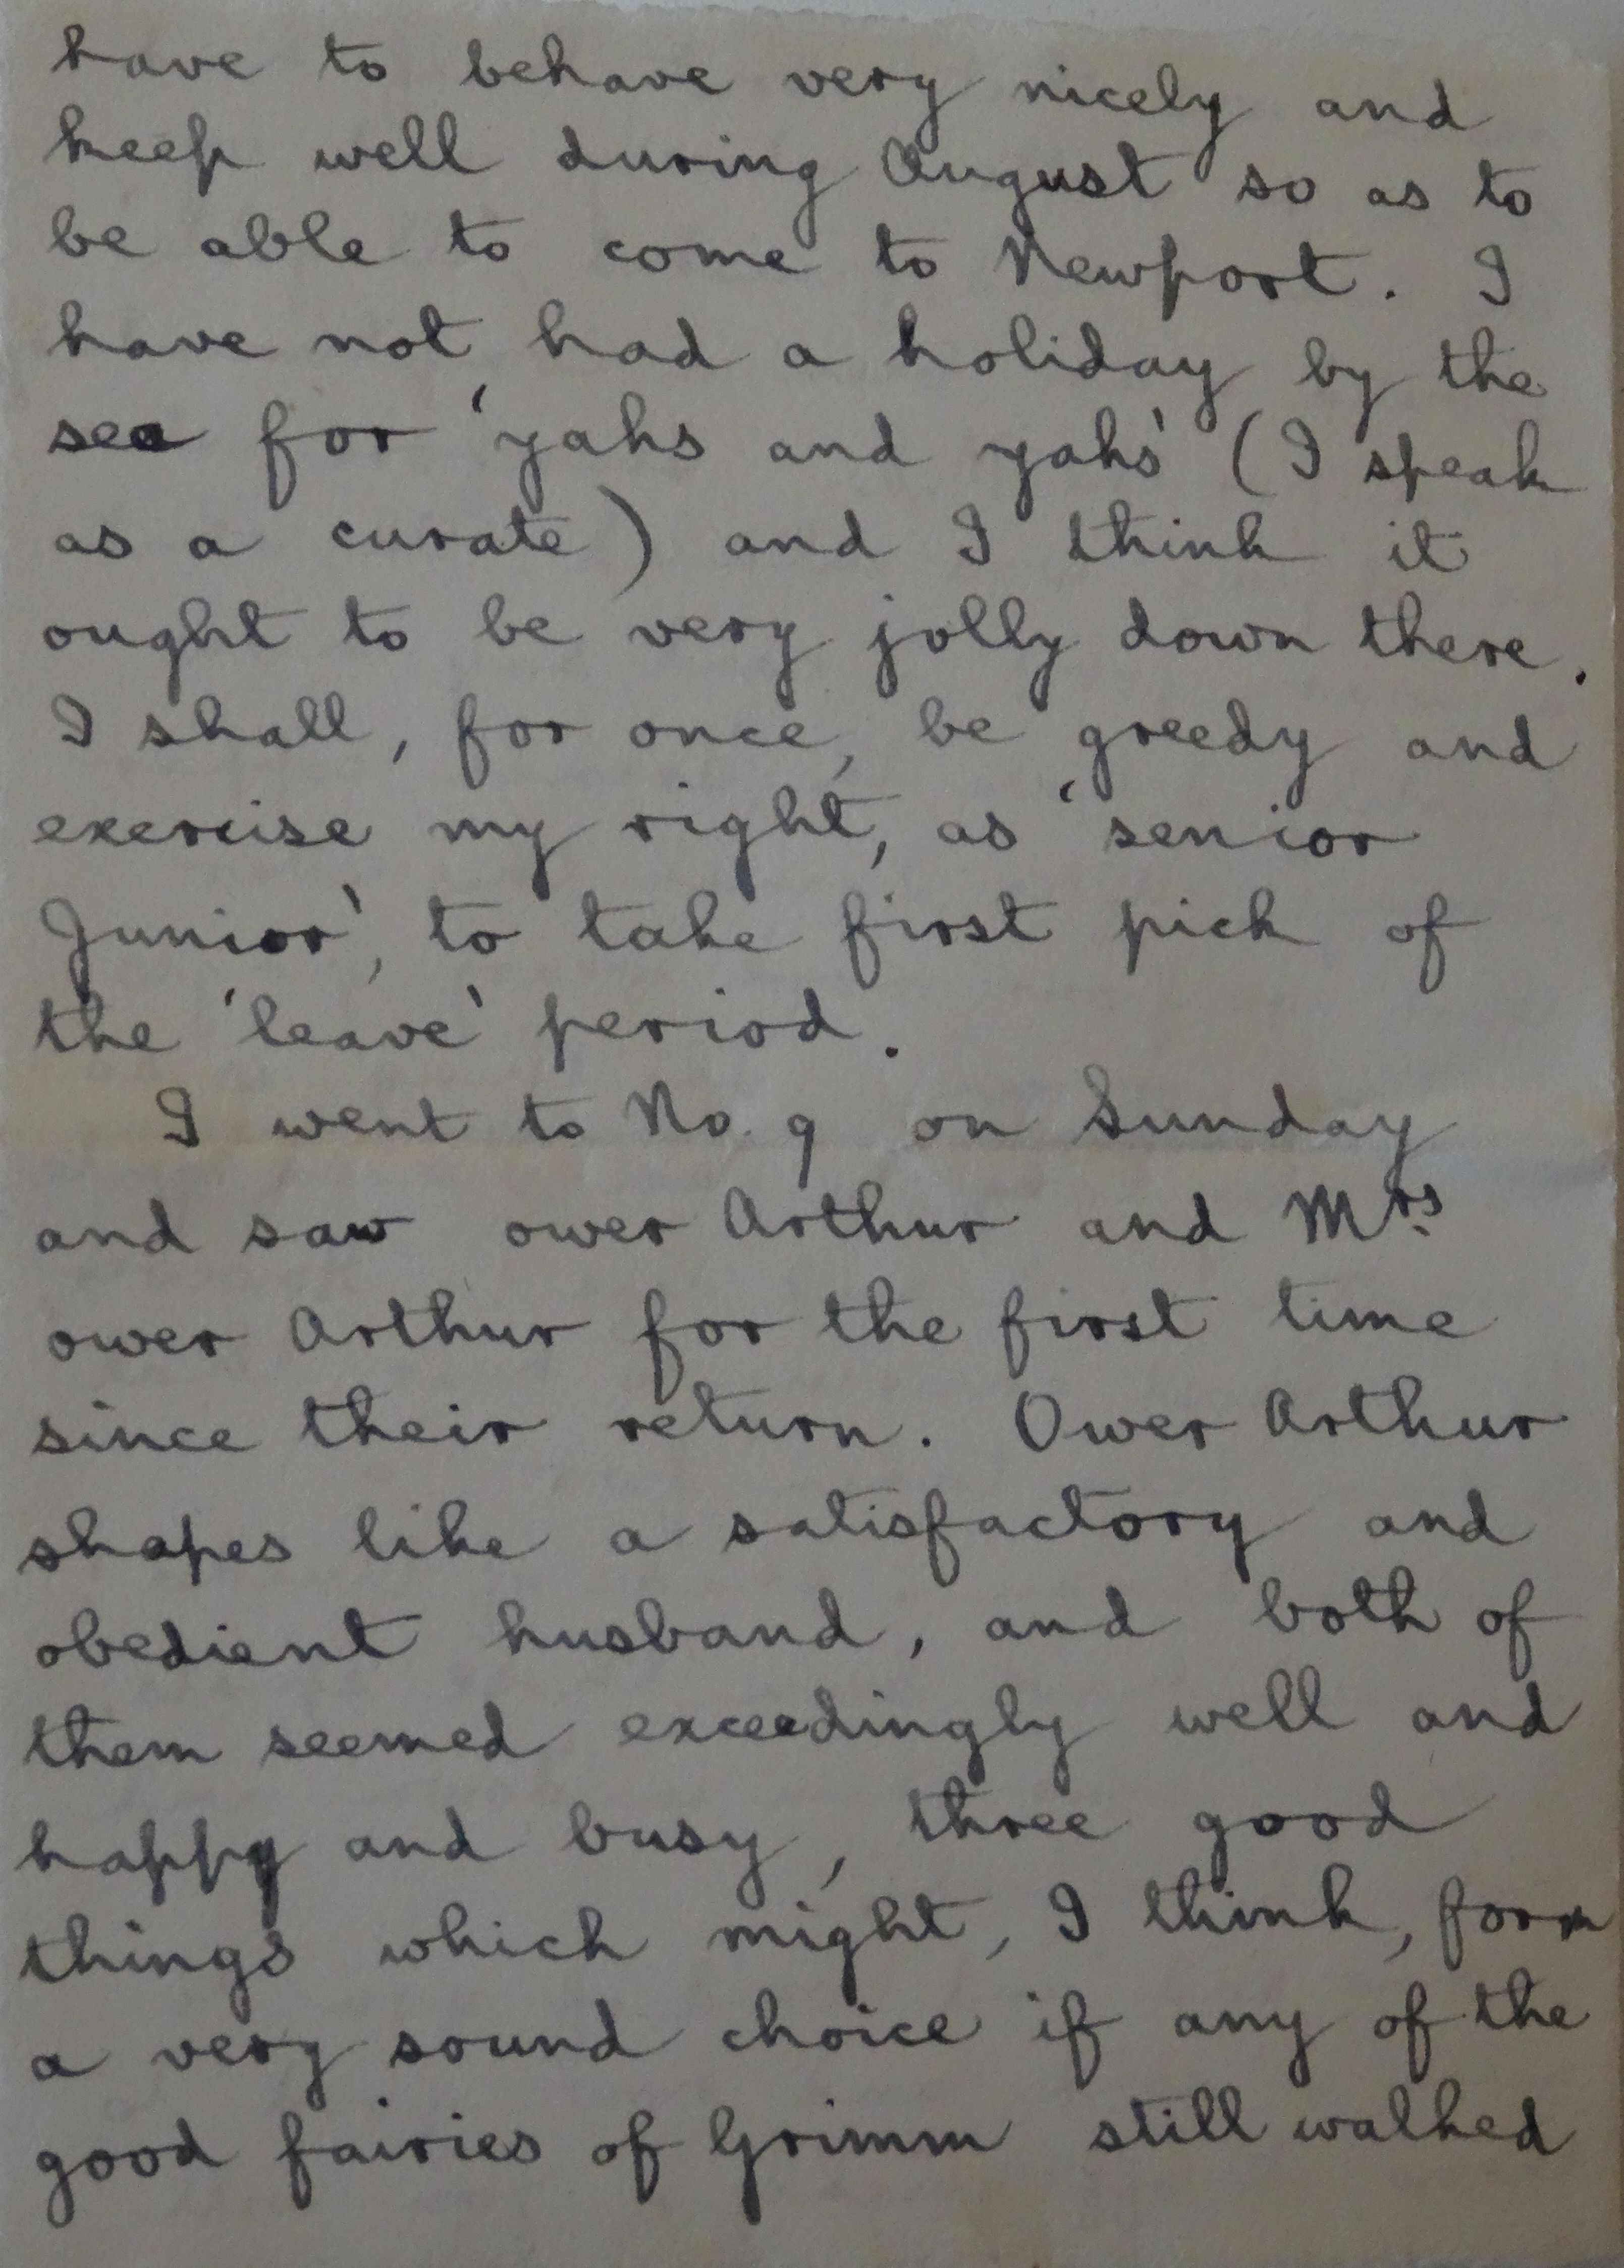 have to behave very nicely and
keep well during August so as to
be able to come to Newport. I
have not had a holiday by the
sea for 'yahs and yahs' (I speak
as a curate) and I think it
ought to be very jolly down there.
I shall, for once, be greedy and
exercise my right, as 'senior
Junior', to take first pick of
the 'leave' period.
I went to No. 9 on Sunday
and saw ower Arthur and Mrs.
ower Arthur for the first time
since their return. Ower Arthur
shapes like a satisfactory and
obedient husband, and both of
them seemed exceedingly well and
happy and busy, three good
things which might, I think, form
a very sound choice if any of the
good fairies of Grimm still walked